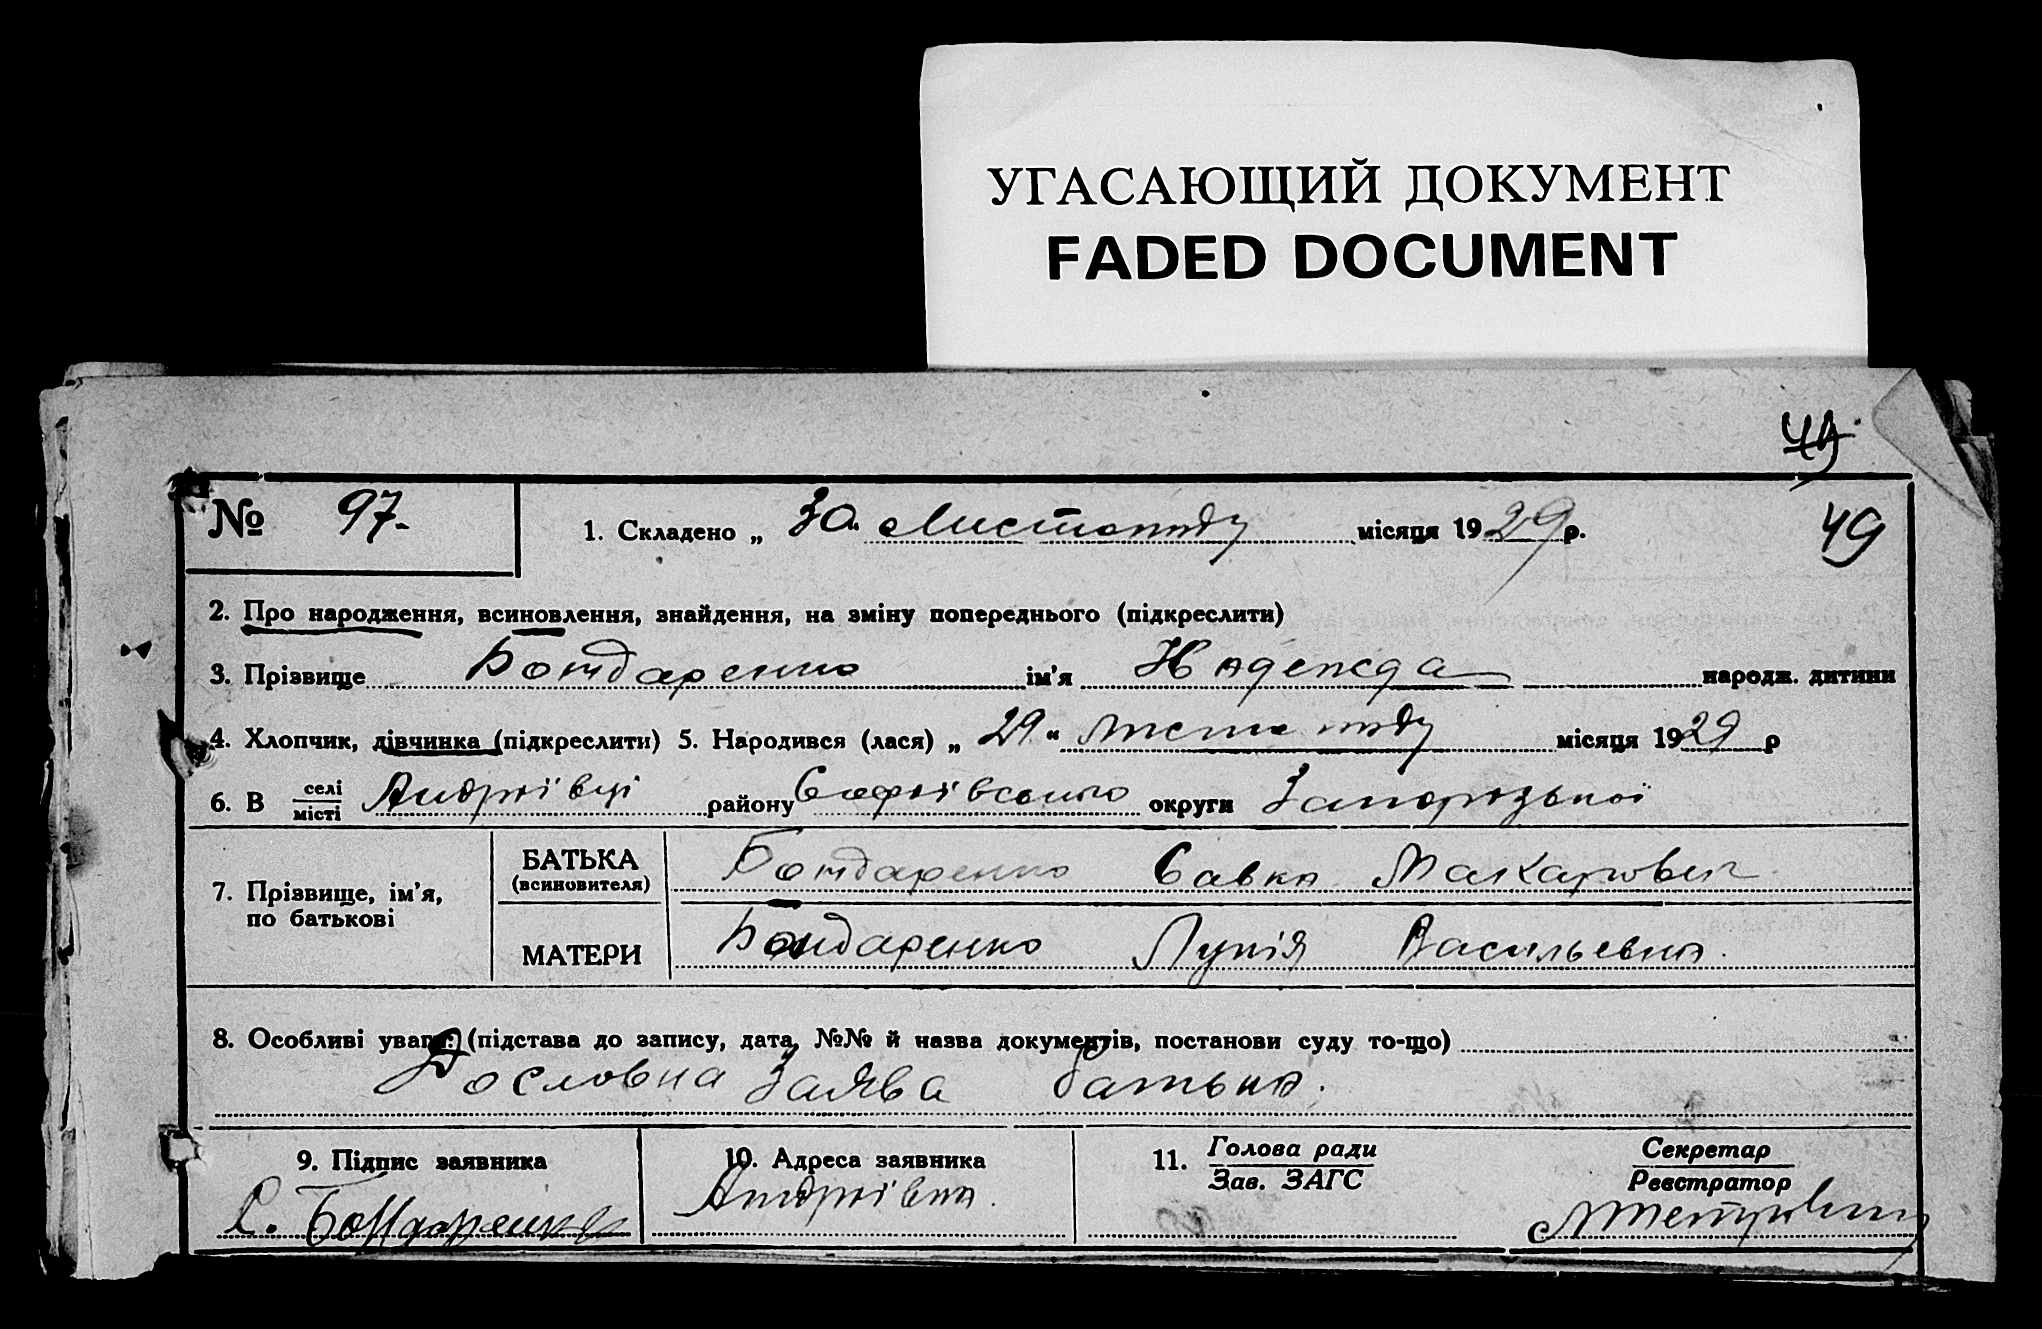 УГАСАЮЩИЙ ДОКУМЕНТ
FADED DOCUMENT
49
№ 97.
1. Складено „ 30. Листопаду місяця 1929 р.
49
2. Про народження, всиновлення, знайдення, на зміну попереднього (підкреслити)
3. Прізвище Бондаренко ім’я Надежда народж. дитини
4. Хлопчик, дівчинка (підкреслити) 5. Народився (лася) „ 29 “ листопаду місяця 1929 р
6. В селі місті Андріївці району Софіївського округи Запорізької
7. Прізвище, ім’я, по батькові
БАТЬКА (всиновителя) Бондаренко Савка Макарович
МАТЕРИ Бондаренко Лукія Васильевна.
8. Особливі уваги: (підстава до запису, дата, №№ й назва документів, постанови суду то-що)
Дословна Заява батька.
9. Підпис заявника
10. Адреса заявника
11. Голова ради Зав. ЗАГС
Секретар Реєстратор
С. Бондаренко
Андріївка.